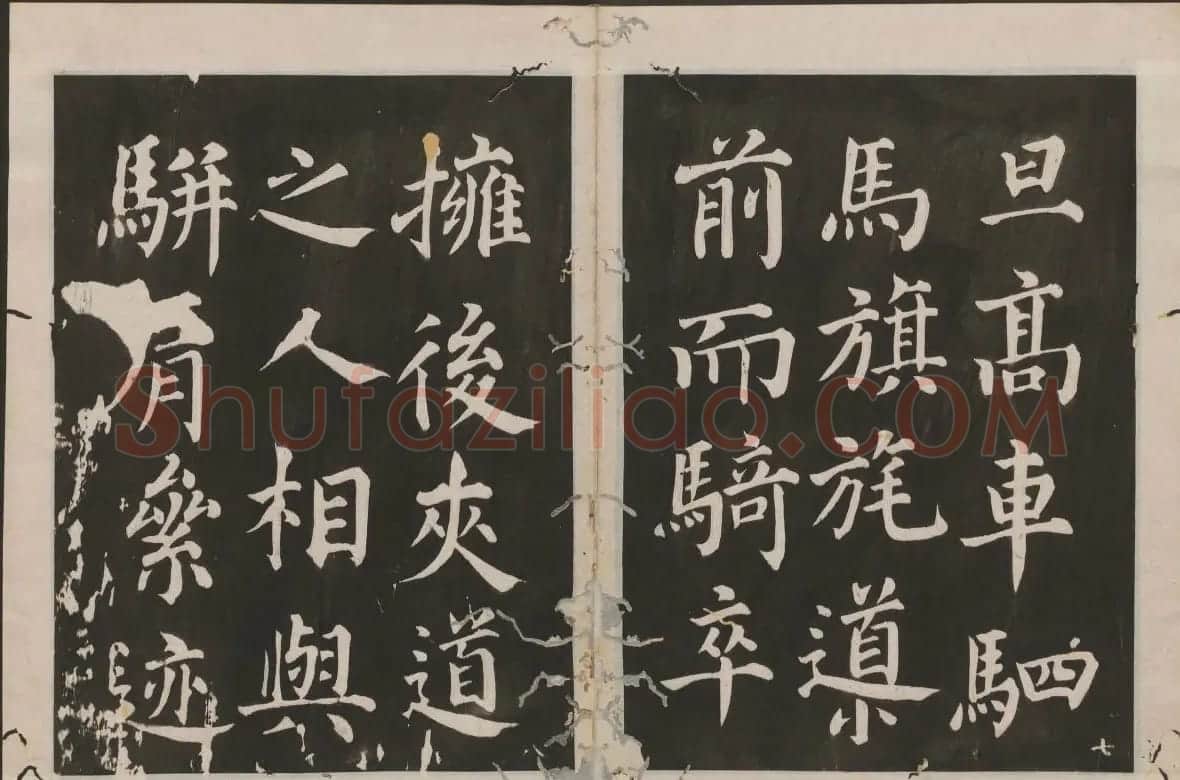 旦髙車駟
馬旗旄導
前而騎卒
七
擁後夾道
之人相與
駢肩絫迹
Shufaziliao.COM